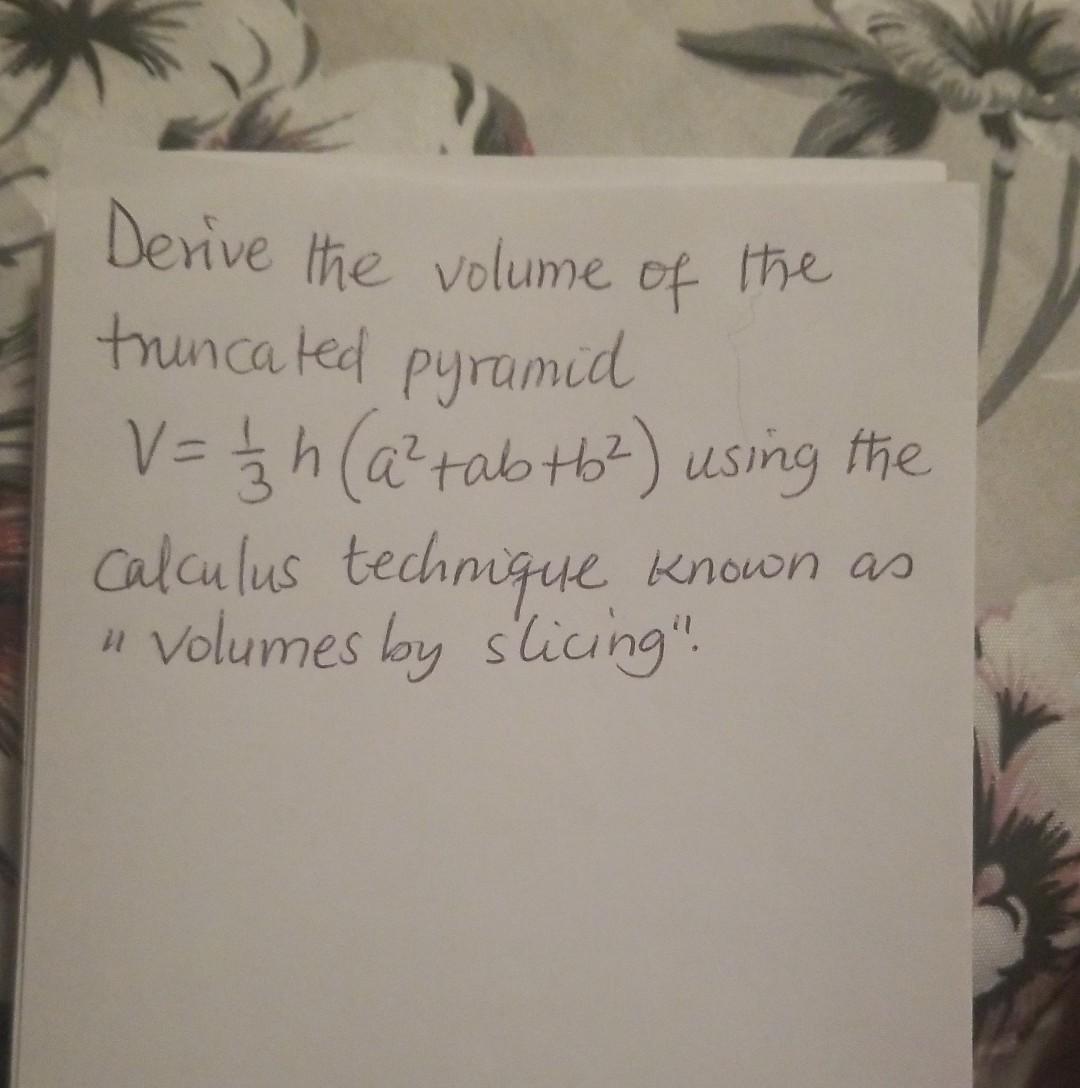 Derive the volume of the
truncated pyramid
V = 1/3 h (a² + ab + b²) using the
calculus technique known as
"volumes by slicing".